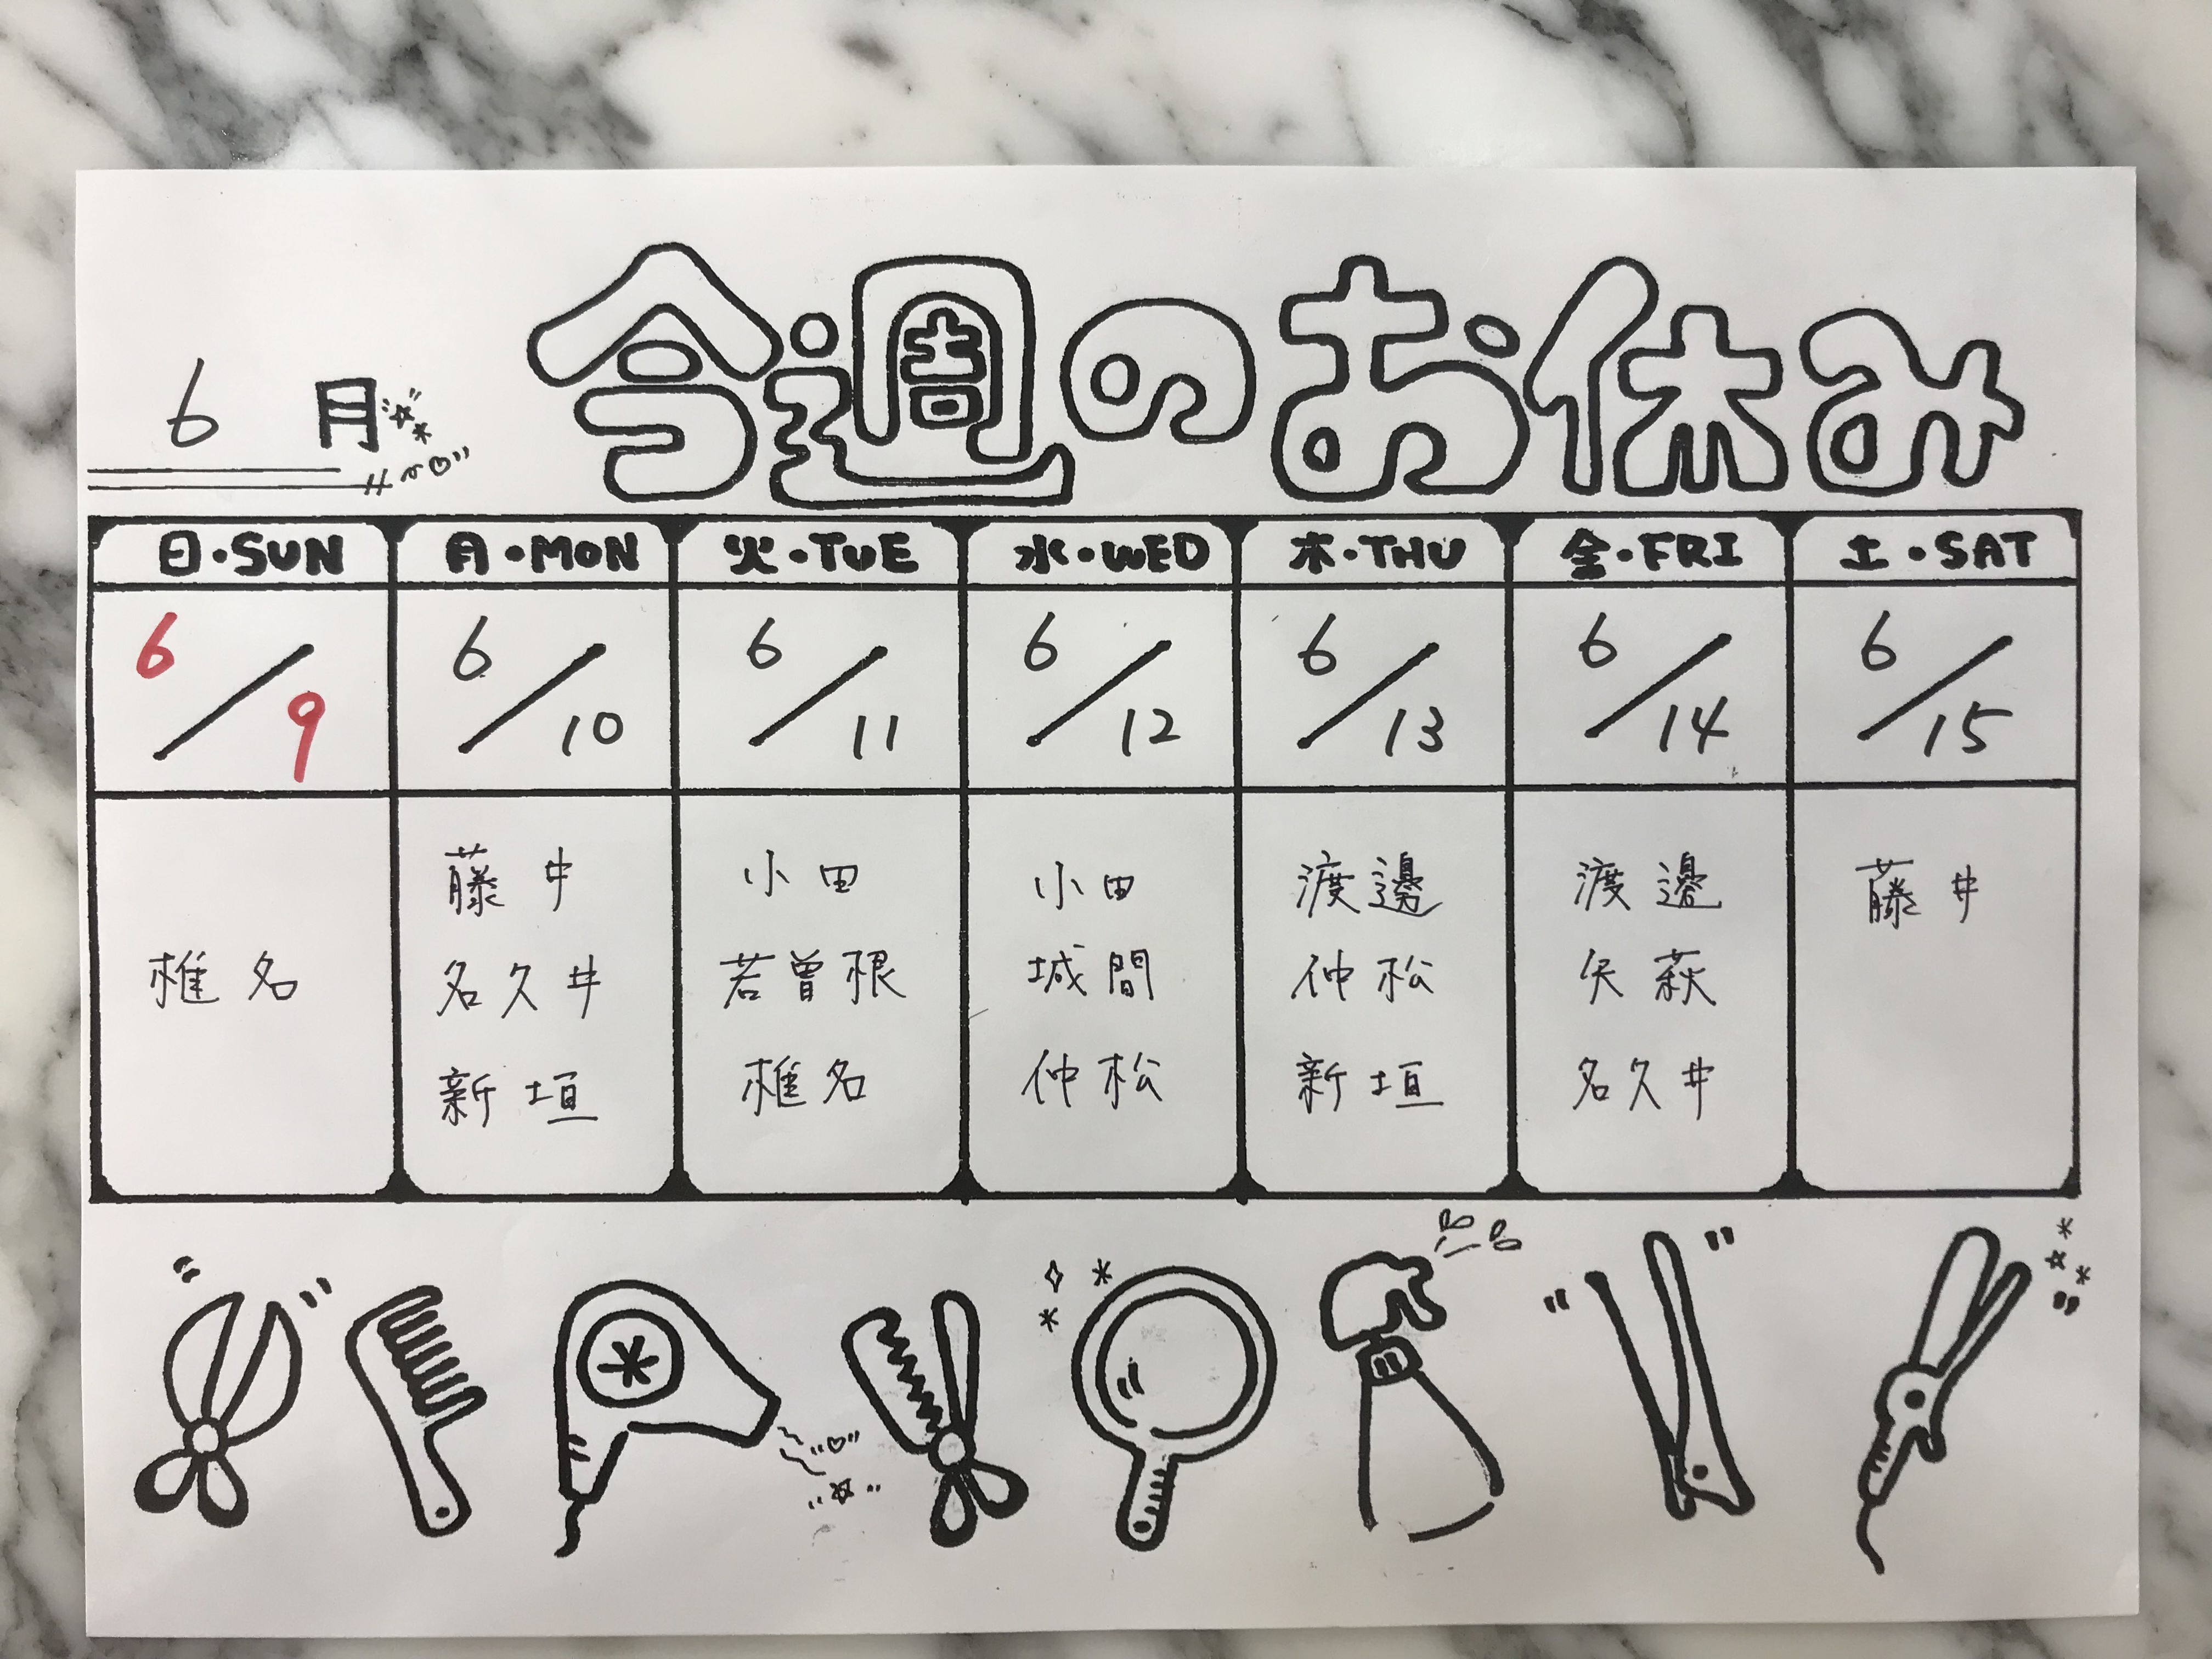 6月
今週のお休み
日・SUN 月・MON 火・TUE 水・WED 木・THU 金・FRI 土・SAT
6/9 6/10 6/11 6/12 6/13 6/14 6/15
椎名
藤井
名久井
新垣
小田
若曽根
椎名
小田
城間
仲松
渡邊
仲松
新垣
渡邊
矢萩
名久井
藤井